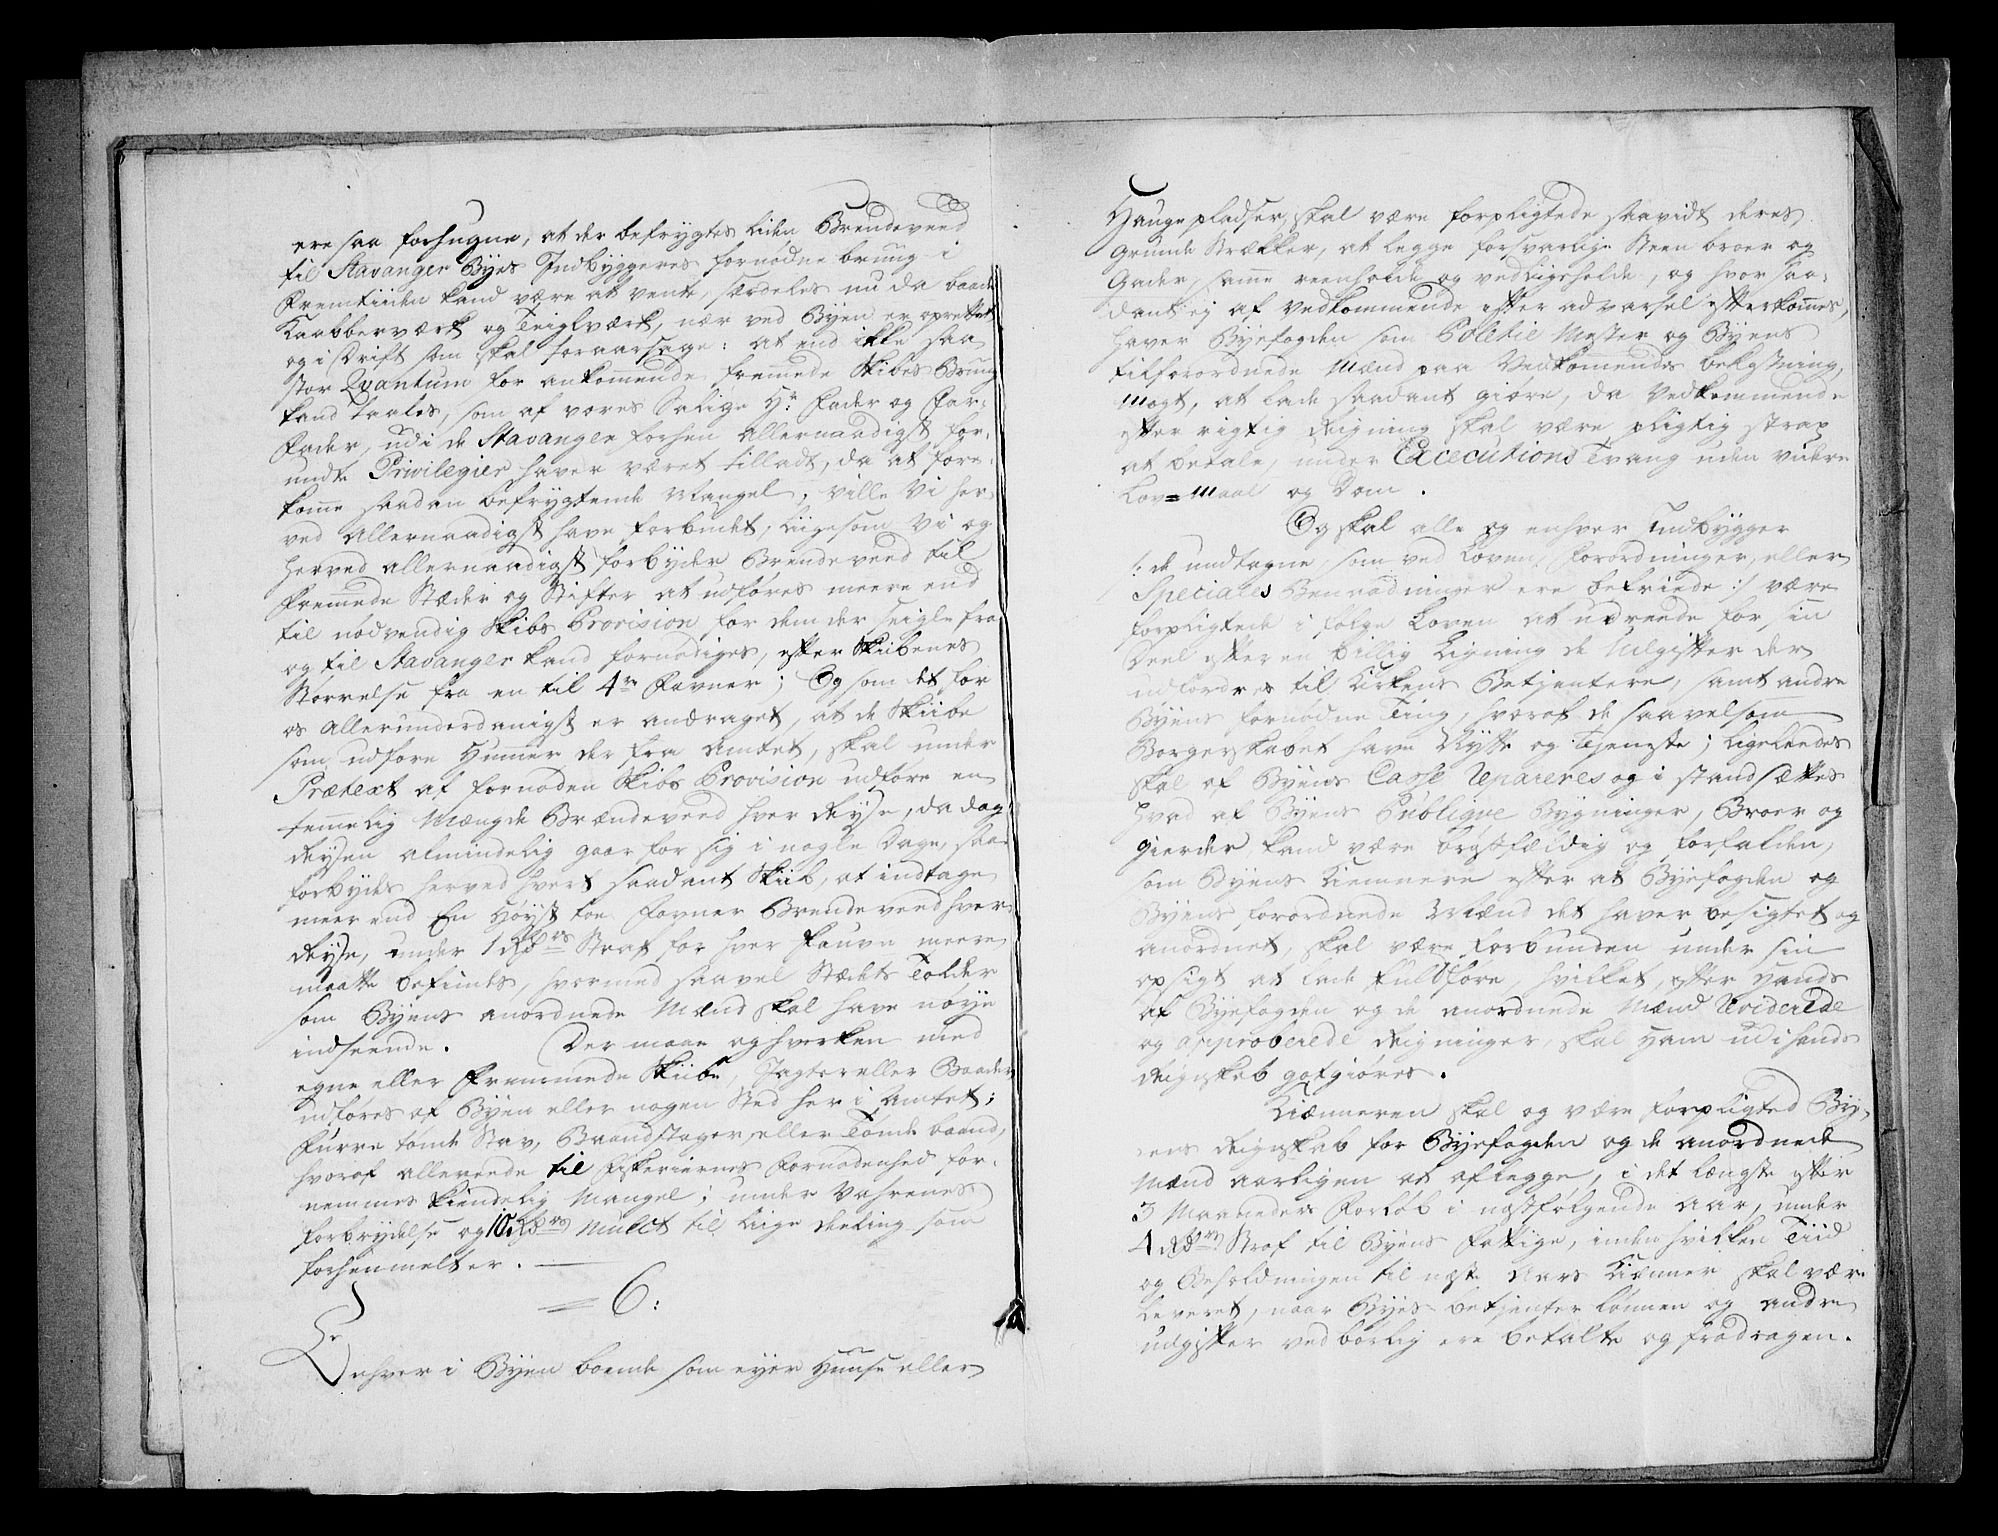 ere saa forhugne, at der befrygtes liden Brendeveed
til Stavanger Byes Indbyggeres fornødne brug i
Fremtiiden kand være at vente, særdeles nu da baade
Kaabberværk og Teiglværk, nær ved Byen er oprettet
og i Drift som skal foraarsage: at end ikke saa
stor Qvantum for ankomende fremede Skibes Brug
kand taales, som af vores Salige Hr: Fader og Far-
Fader, udi de Stavanger forhen allernaadigst for-
undte Privilegier haver været tilladt, da at fore-
kome saadan befrygtende Mangel, ville Vi her-
ved Allernaadigst have forbudet, liigesom Vi og
herved allernaadigst forbyder Brendeveed til
fremede Stæder og Stifter at udføres meere end
til nødvendig Skibs Provision for dem der seigle fra
og til Stavanger kand fornødiges, efter Skiibenes
Størrelse fra en til 4re Favner; Og som det for
os Allerunderdanigst er andraget, at de Skiibe
som udføre Humer der fra Amtet, skal under
Prætext af fornøden Skibs Provision udføre en
temelig Mængde Brændeveed hver Reyse, da dog
Reysen almindelig gaar for sig i nogle Dage, saa
forbydes herved hvert saadant Skiib, at indtage
meer end En Høyst toe Favner Brendeveed hver
Reyse, under 1 Rdrs Straf for hver Fauvn meere
maatte befindes, hvormed saavel Stædets Tolder
som Byens anordnede Mænd skal have nøye
indseende. Der maae og hverken med
egne eller Fremmede Skiibe, Jagter eller Baader
udføres af Byen eller nogen Sted her i Amtet;
Furre tønde Stav, Baandstager eller Tønde baand,
hvoraf allereede til Fiskeriernes Fornødenhed for-
nemmes kiendelig Mangel; under Vahrenes
forbrydelse og 10 Rdrs Mulct til liige deeling som
forhenmelt er.
6:
Enhver i Byen boende som eyer Huuse eller
Haugepladser, skal være forpligtede saavidt deres
Grunde Strækker, at legge forsvarlige Steen broer og
Gader, same reenholde og vedligeholde, og hvor saa-
dant ej af Vedkommende efter advarsel efterkomes,
haver Byefogden som Politie Mester og Byens
tilforordnede Mænd paa Vedkomendes bekostning,
Magt, at lade saadant giøre, da Vedkommende
efter rigtig Reigning skal være pligtig strax
at betale, under Executions Tvang uden videre
Lov=Maal og Dom.
Og skal alle og enhver Indbygger
/: de undtagne som ved Loven, Forordninger, eller
Speciales Benaadninger ere befriede :/ være
forpligtede i følge Loven at udreede for sin
Deel efter en billig Ligning de Udgifter der
udfordres til Kirkens Betjentere, samt andre
Byens fornødne Ting, hvoraf de saavelsom
Borgerskabet have Nytte og Tjeneste; ligeleedes
skal af Byens Casse Repareres og i stand sættes
hvad af Byens Publique Bygninger, Broer og
gierder, kand være brøstfældig og forfalden,
som Byens Kiemnere efter at Byefogden og
Byens forordnede Mænd det haver besigtet og
anordnet, skal være forbunden under sin
opsigt at lade fuldføre, hvilket, efter Hands
af Byefogden og de anordnede Mænd Reviderede
og approberede Reigninger, skal Ham udi hands
Reignskab gotgiøres.
Kiæmneren skal og være forpligted By-
ens Reignskab for Byefogden og de anordnede
Mænd aarligen at aflegge, i det længste efter
3 Maaneders Forløb i næstfølgende Aar, under
4 Rdrs Straf til Byens Fattige, inden hvilken Tiid
og Beholdningen til næste Aars Kiæmner skal være
leveret, naar Byes betjenter lønnen og andre
udgifter ved børlig ere betalte og fradragen.